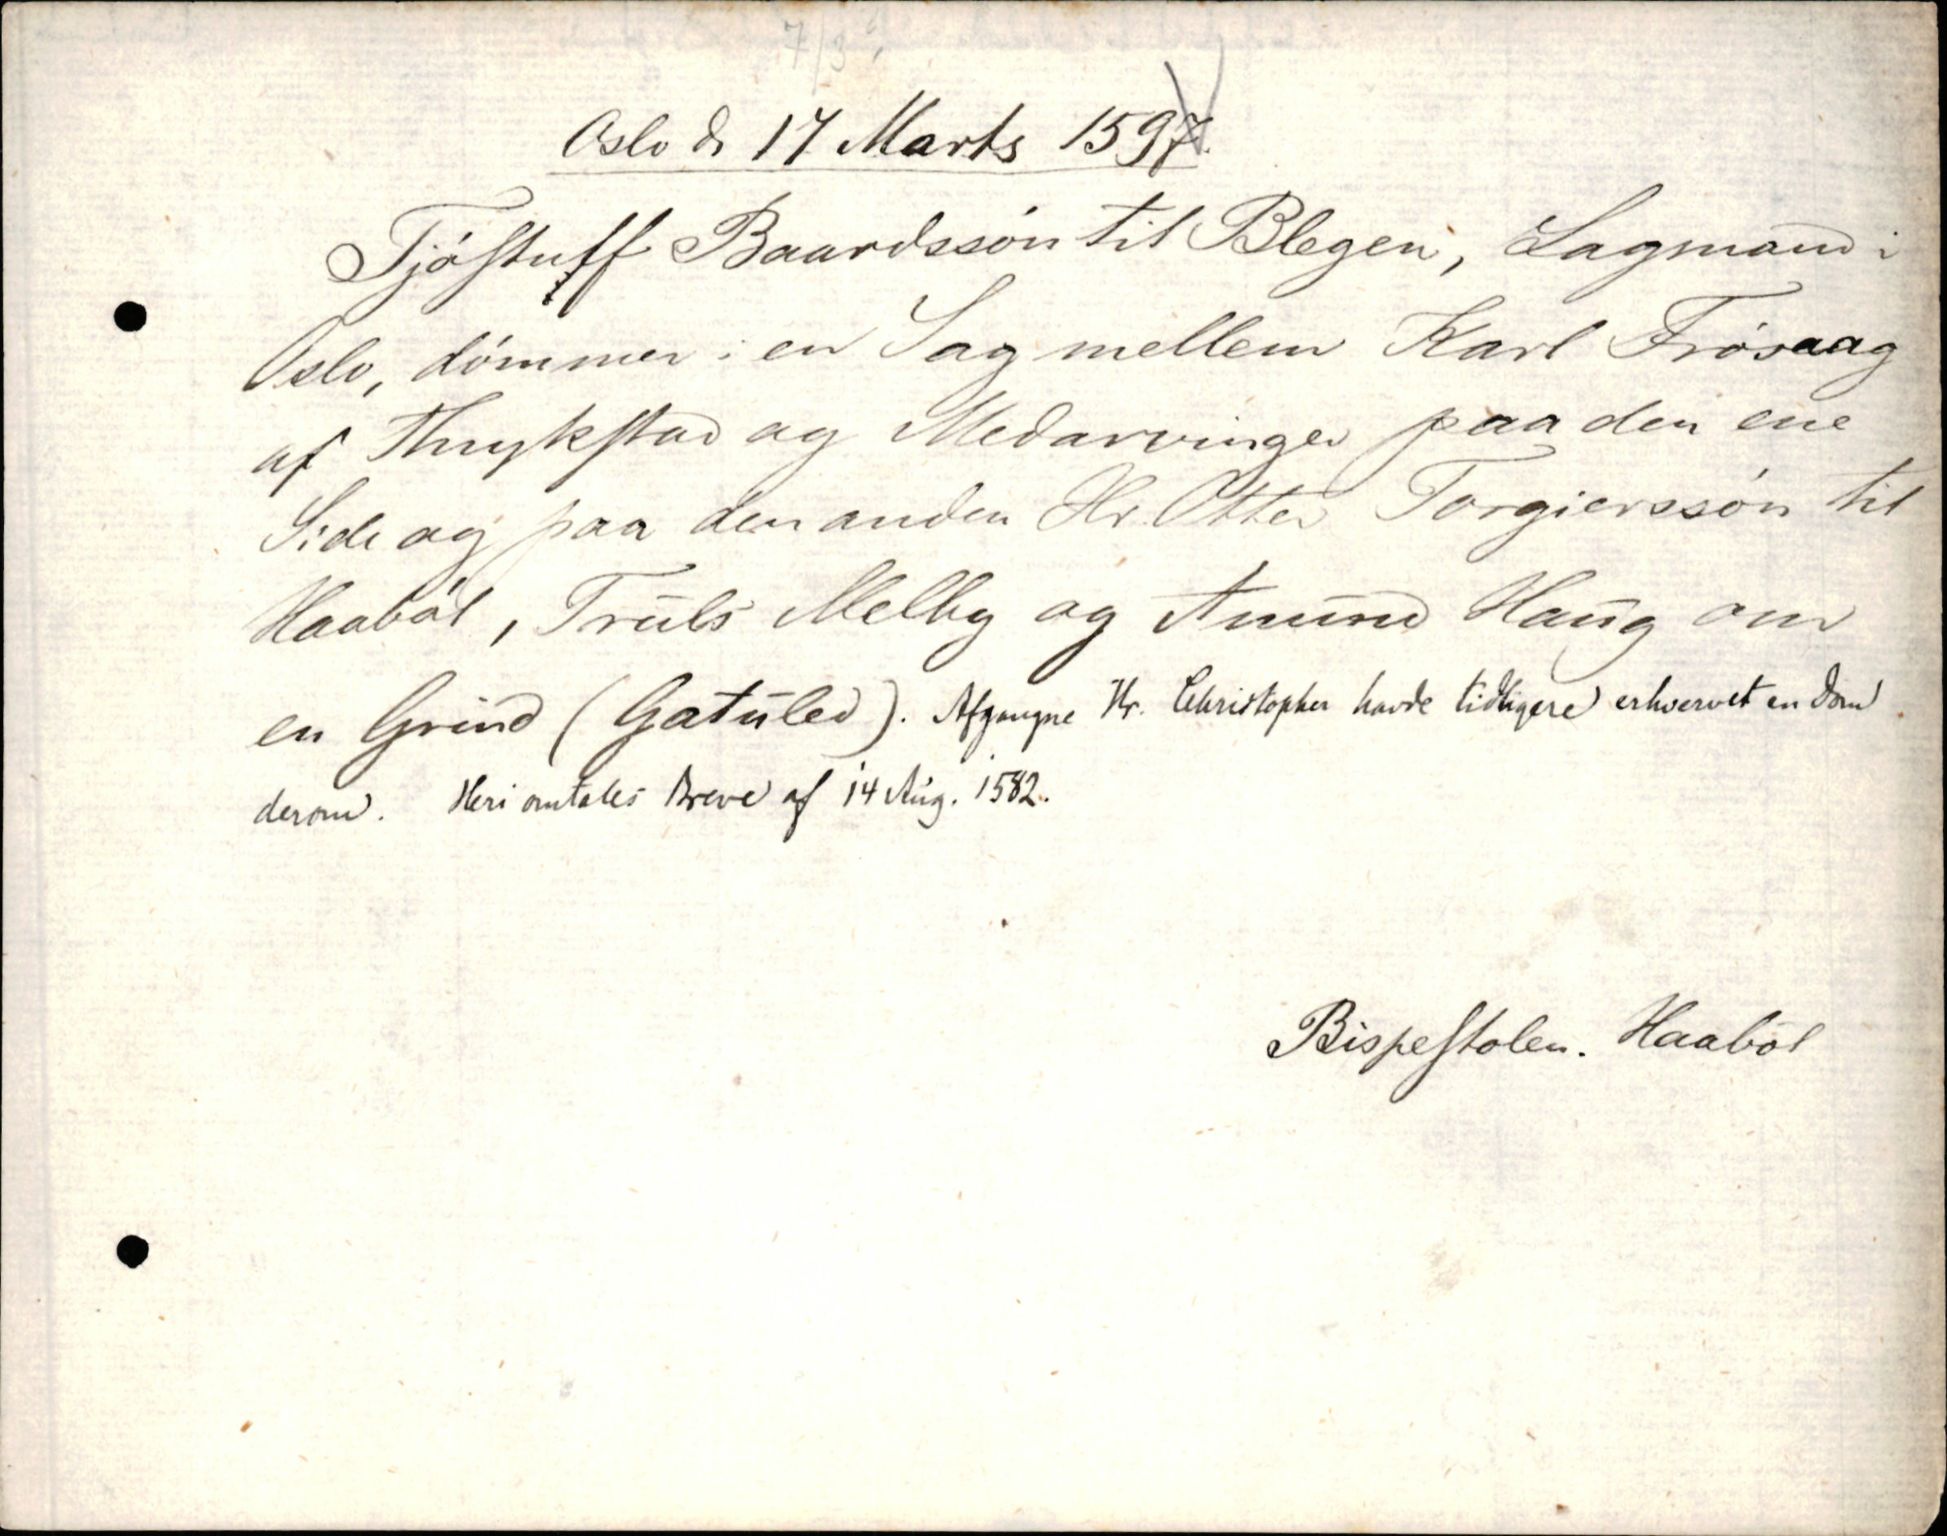 7/3
Oslo d. 17 Marts 1597.
Tjóstuff Baardssón til Blegen, Lagmand i
Oslo, dómmer i en Sag mellem Karl Frósaag
af Thrykstad og Medarvinger paa den ene
Side og paa den anden Hr. Otter Torgierssón til
Haaból, Truls Melby og Amund Haug om
en Grind (Gatuled). Afgangne Hr. Christopher havde tidligere erhvervet en Dom
derom. Heri omtales Breve af 14 Aug. 1582.
Bispestolen. Haaból